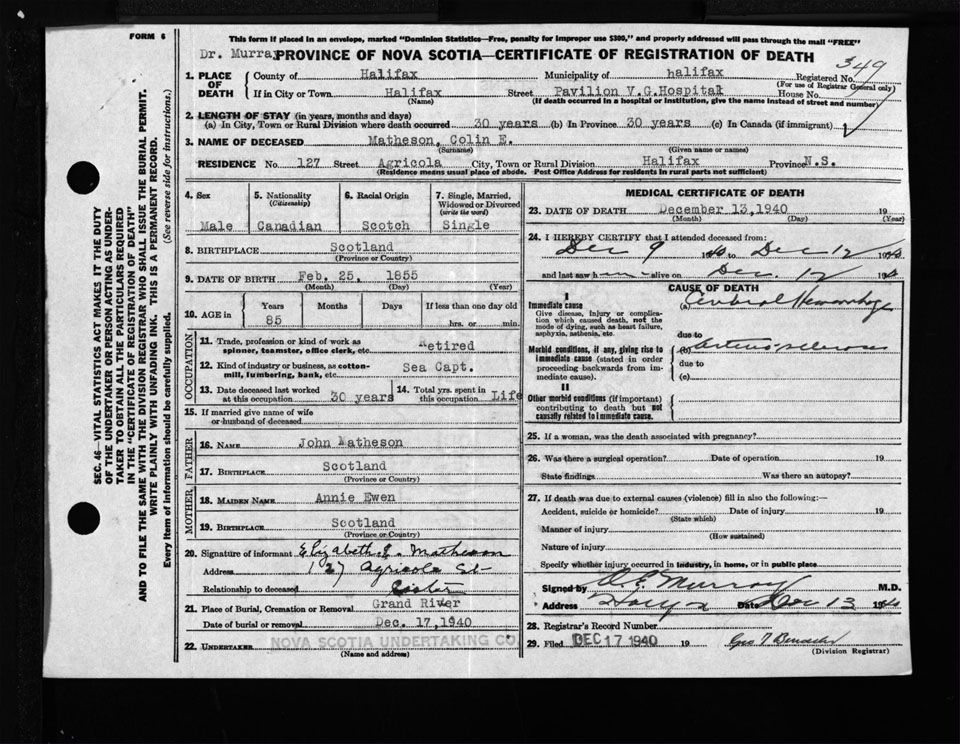 FORM 6
This form if placed in an envelope, marked "Dominion Statistics—Free, penalty for improper use $300," and properly addressed will pass through the mail "FREE"
Dr. Murra
PROVINCE OF NOVA SCOTIA—CERTIFICATE OF REGISTRATION OF DEATH
349
1. PLACE OF DEATH
County of Halifax Municipality of halifax Registered No.
(For use of Registrar General only)
If in City or Town Halifax Street Pavilion V.G.Hospital House No.
(Name) (If death occurred in a hospital or institution, give the name instead of street and number)
2. LENGTH OF STAY (in years, months and days)
(a) In City, Town or Rural Division where death occurred 30 years (b) In Province 30 years (c) In Canada (if immigrant)
3. NAME OF DECEASED Matheson, Colin E.
(Surname) (Given name or names)
RESIDENCE No. 127 Street Agricola City, Town or Rural Division Halifax Province N.S.
(Residence means usual place of abode. Post Office Address for residents in rural parts not sufficient)
4. Sex Male
5. Nationality (Citizenship) Canadian
6. Racial Origin Scotch
7. Single, Married, Widowed or Divorced (write the word) Single
8. BIRTHPLACE Scotland
(Province or Country)
9. DATE OF BIRTH Feb. 25, 1855
(Month) (Day) (Year)
10. AGE in Years Months Days If less than one day old
85 hrs. or min.
OCCUPATION
11. Trade, profession or kind of work as spinner, teamster, office clerk, etc. Retired
12. Kind of industry or business, as cotton-mill, lumbering, bank, etc. Sea Capt.
13. Date deceased last worked at this occupation 30 years
14. Total yrs. spent in this occupation Life
15. If married give name of wife or husband of deceased
FATHER
16. NAME John Matheson
17. BIRTHPLACE Scotland
(Province or Country)
MOTHER
18. MAIDEN NAME Annie Ewen
19. BIRTHPLACE Scotland
(Province or Country)
20. Signature of informant Elizabeth E. Matheson
Address 127 Agricola St
Relationship to deceased Sister
21. Place of Burial, Cremation or Removal Grand River
Date of burial or removal Dec. 17, 1940
22. UNDERTAKER NOVA SCOTIA UNDERTAKING CO.
(Name and address)
MEDICAL CERTIFICATE OF DEATH
23. DATE OF DEATH December 13, 1940 19
(Month) (Day) (Year)
24. I HEREBY CERTIFY that I attended deceased from:
Dec 9 1940 to Dec 12 1940
and last saw h im alive on Dec. 12 1940
CAUSE OF DEATH
I
Immediate cause
Give disease, injury or complication which caused death, not the mode of dying, such as heart failure, asphyxia, asthenia, etc.
(a) Cerebral Hemorrhage
due to
Morbid conditions, if any, giving rise to immediate cause (stated in order proceeding backwards from immediate cause).
(b) Arterio-sclerosis
due to
(c)
II
Other morbid conditions (if important) contributing to death but not causally related to immediate cause.
25. If a woman, was the death associated with pregnancy?
26. Was there a surgical operation? Date of operation 19
State findings Was there an autopsy?
27. If death was due to external causes (violence) fill in also the following:—
Accident, suicide or homicide? Date of injury 19
(State which)
Manner of injury
(How sustained)
Nature of injury
Specify whether injury occurred in industry, in home, or in public place
Signed by D E Murray M.D.
Address Date Dec 13 1940
28. Registrar's Record Number
29. Filed DEC 17 1940 19
(Division Registrar)
SEC. 46—VITAL STATISTICS ACT MAKES IT THE DUTY
OF THE UNDERTAKER OR PERSON ACTING AS UNDER-
TAKER TO OBTAIN ALL THE PARTICULARS REQUIRED
IN THE "CERTIFICATE OF REGISTRATION OF DEATH"
AND TO FILE THE SAME WITH THE DIVISION REGISTRAR WHO SHALL ISSUE THE BURIAL PERMIT.
WRITE PLAINLY WITH UNFADING INK. THIS IS A PERMANENT RECORD.
Every item of information should be carefully supplied. (See reverse side for instructions.)